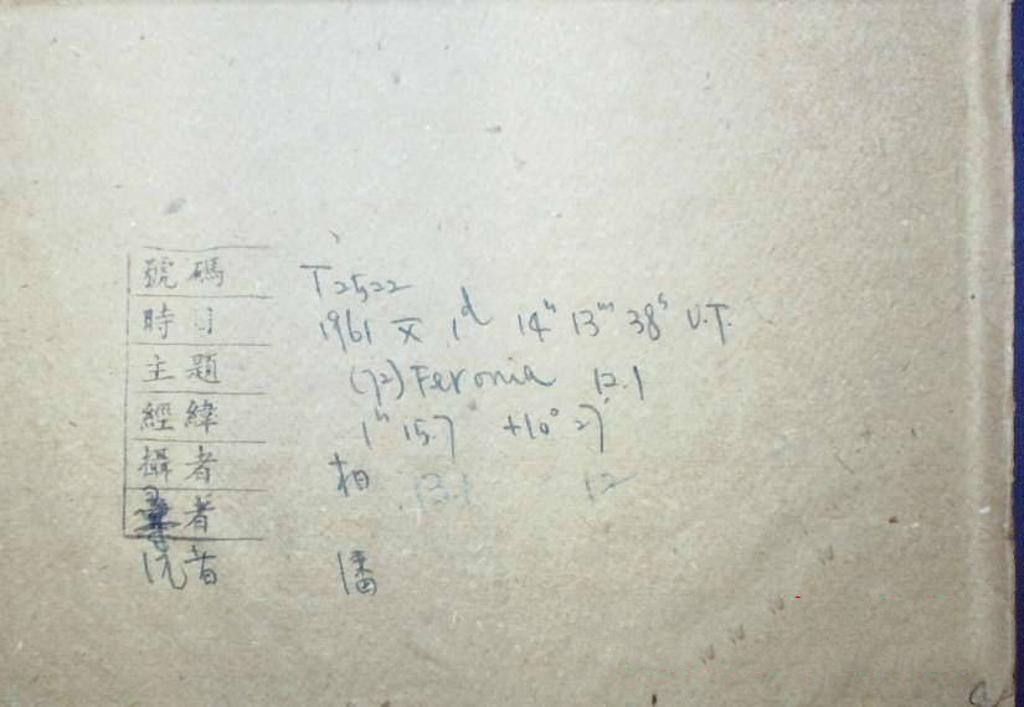 號碼 T2522
時 1961 X 1d 14h 13m 38s U.T.
主題 (72) Feronia 12.1
經緯 1h 15.7 +10° 27'
攝者 相 13.1 12
者
洗者 潘